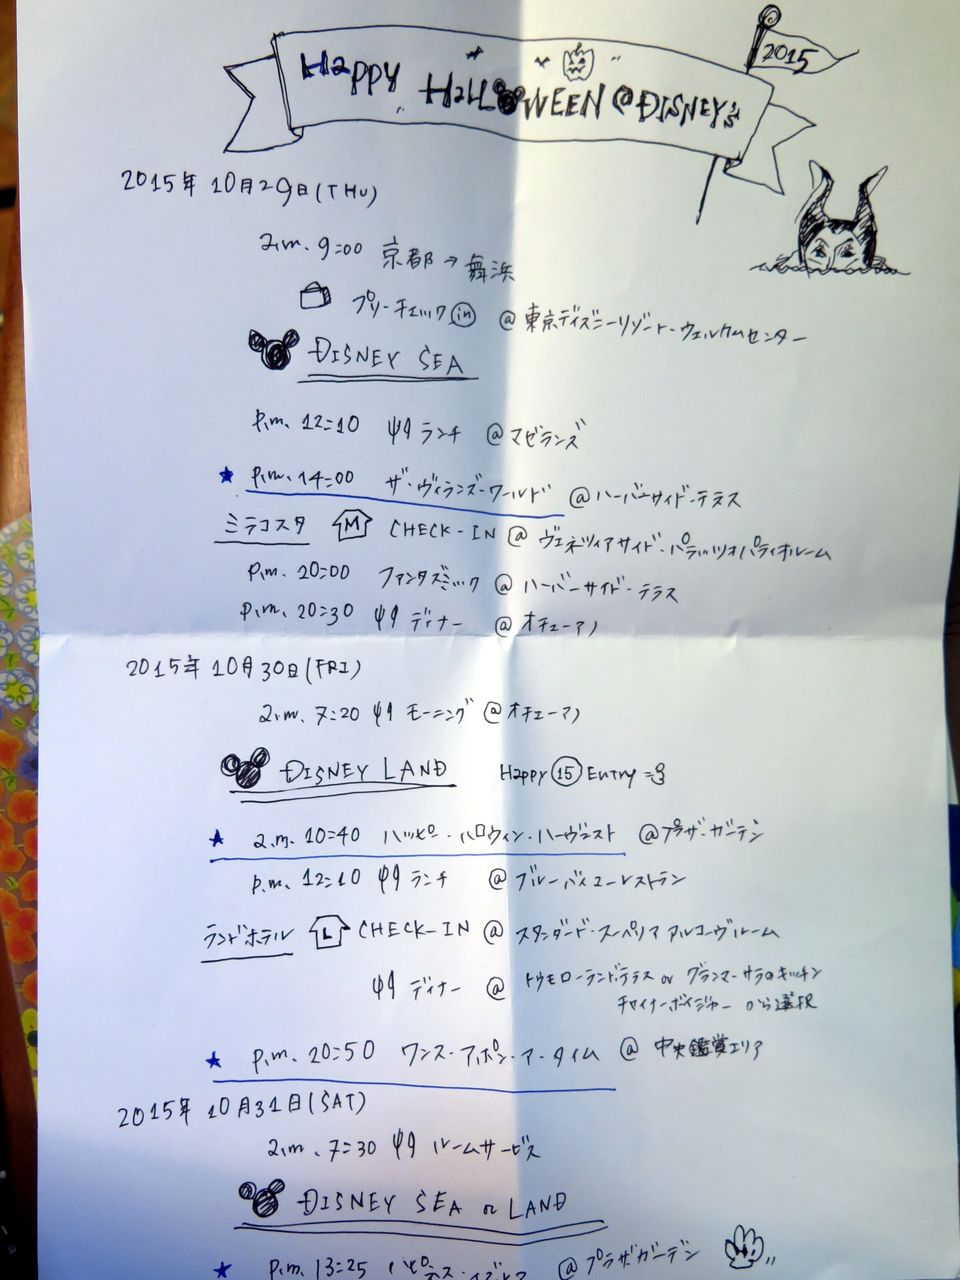 2015
Happy HalloWEEN @ DISNEY's
2015年 10月29日(THU)
a.m. 9:00 京都→舞浜
プリーチェック in @ 東京ディズニーリゾート・ウェルカムセンター
DISNEY SEA
p.m. 12:10 ランチ @ マゼランズ
★ p.m. 14:00 ザ・ヴィランズ・ワールド @ ハーバーサイド・テラス
ミラコスタ M CHECK-IN @ ヴェネツィアサイド・パラッツオパティオルーム
p.m. 20:00 ファンタズミック @ ハーバーサイド・テラス
p.m. 20:30 ディナー @ オチェーアノ
2015年 10月30日(FRI)
a.m. 7:20 モーニング @ オチェーアノ
DISNEY LAND Happy 15 Entry
★ a.m. 10:40 ハッピー・ハロウィン・ハーヴェスト @ プラザ・ガーデン
p.m. 12:10 ランチ @ ブルーバイユーレストラン
ランドホテル L CHECK-IN @ スタンダード・スーペリアアルコーヴルーム
ディナー @ トゥモローランド・テラス or グランマ・サラのキッチン
チャイナボイジャー から選択
★ p.m. 20:50 ワンス・アポン・ア・タイム @ 中央鑑賞エリア
2015年 10月31日(SAT)
a.m. 7:30 ルームサービス
DISNEY SEA or LAND
★ p.m. 13:25 @ プラザガーデン